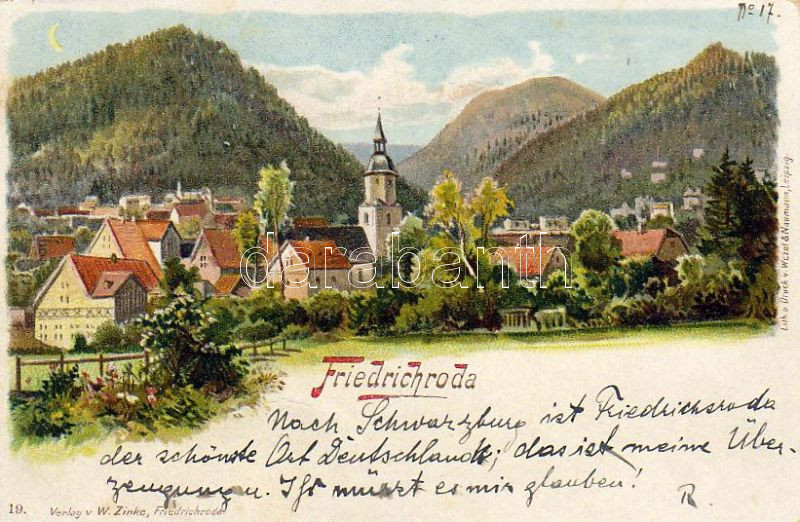 No 17.
darabanth
Lith. u. Druck v. Wezel & Naumann, Leipzig.
Friedrichroda
Nach Schwarzburg ist Friedrichsroda
der schönste Ort Deutschlands; das ist meine Über-
zeugungen. Ihr müszt es mir glauben!
R.
19. Verlag v W. Zinke, Friedrichroda